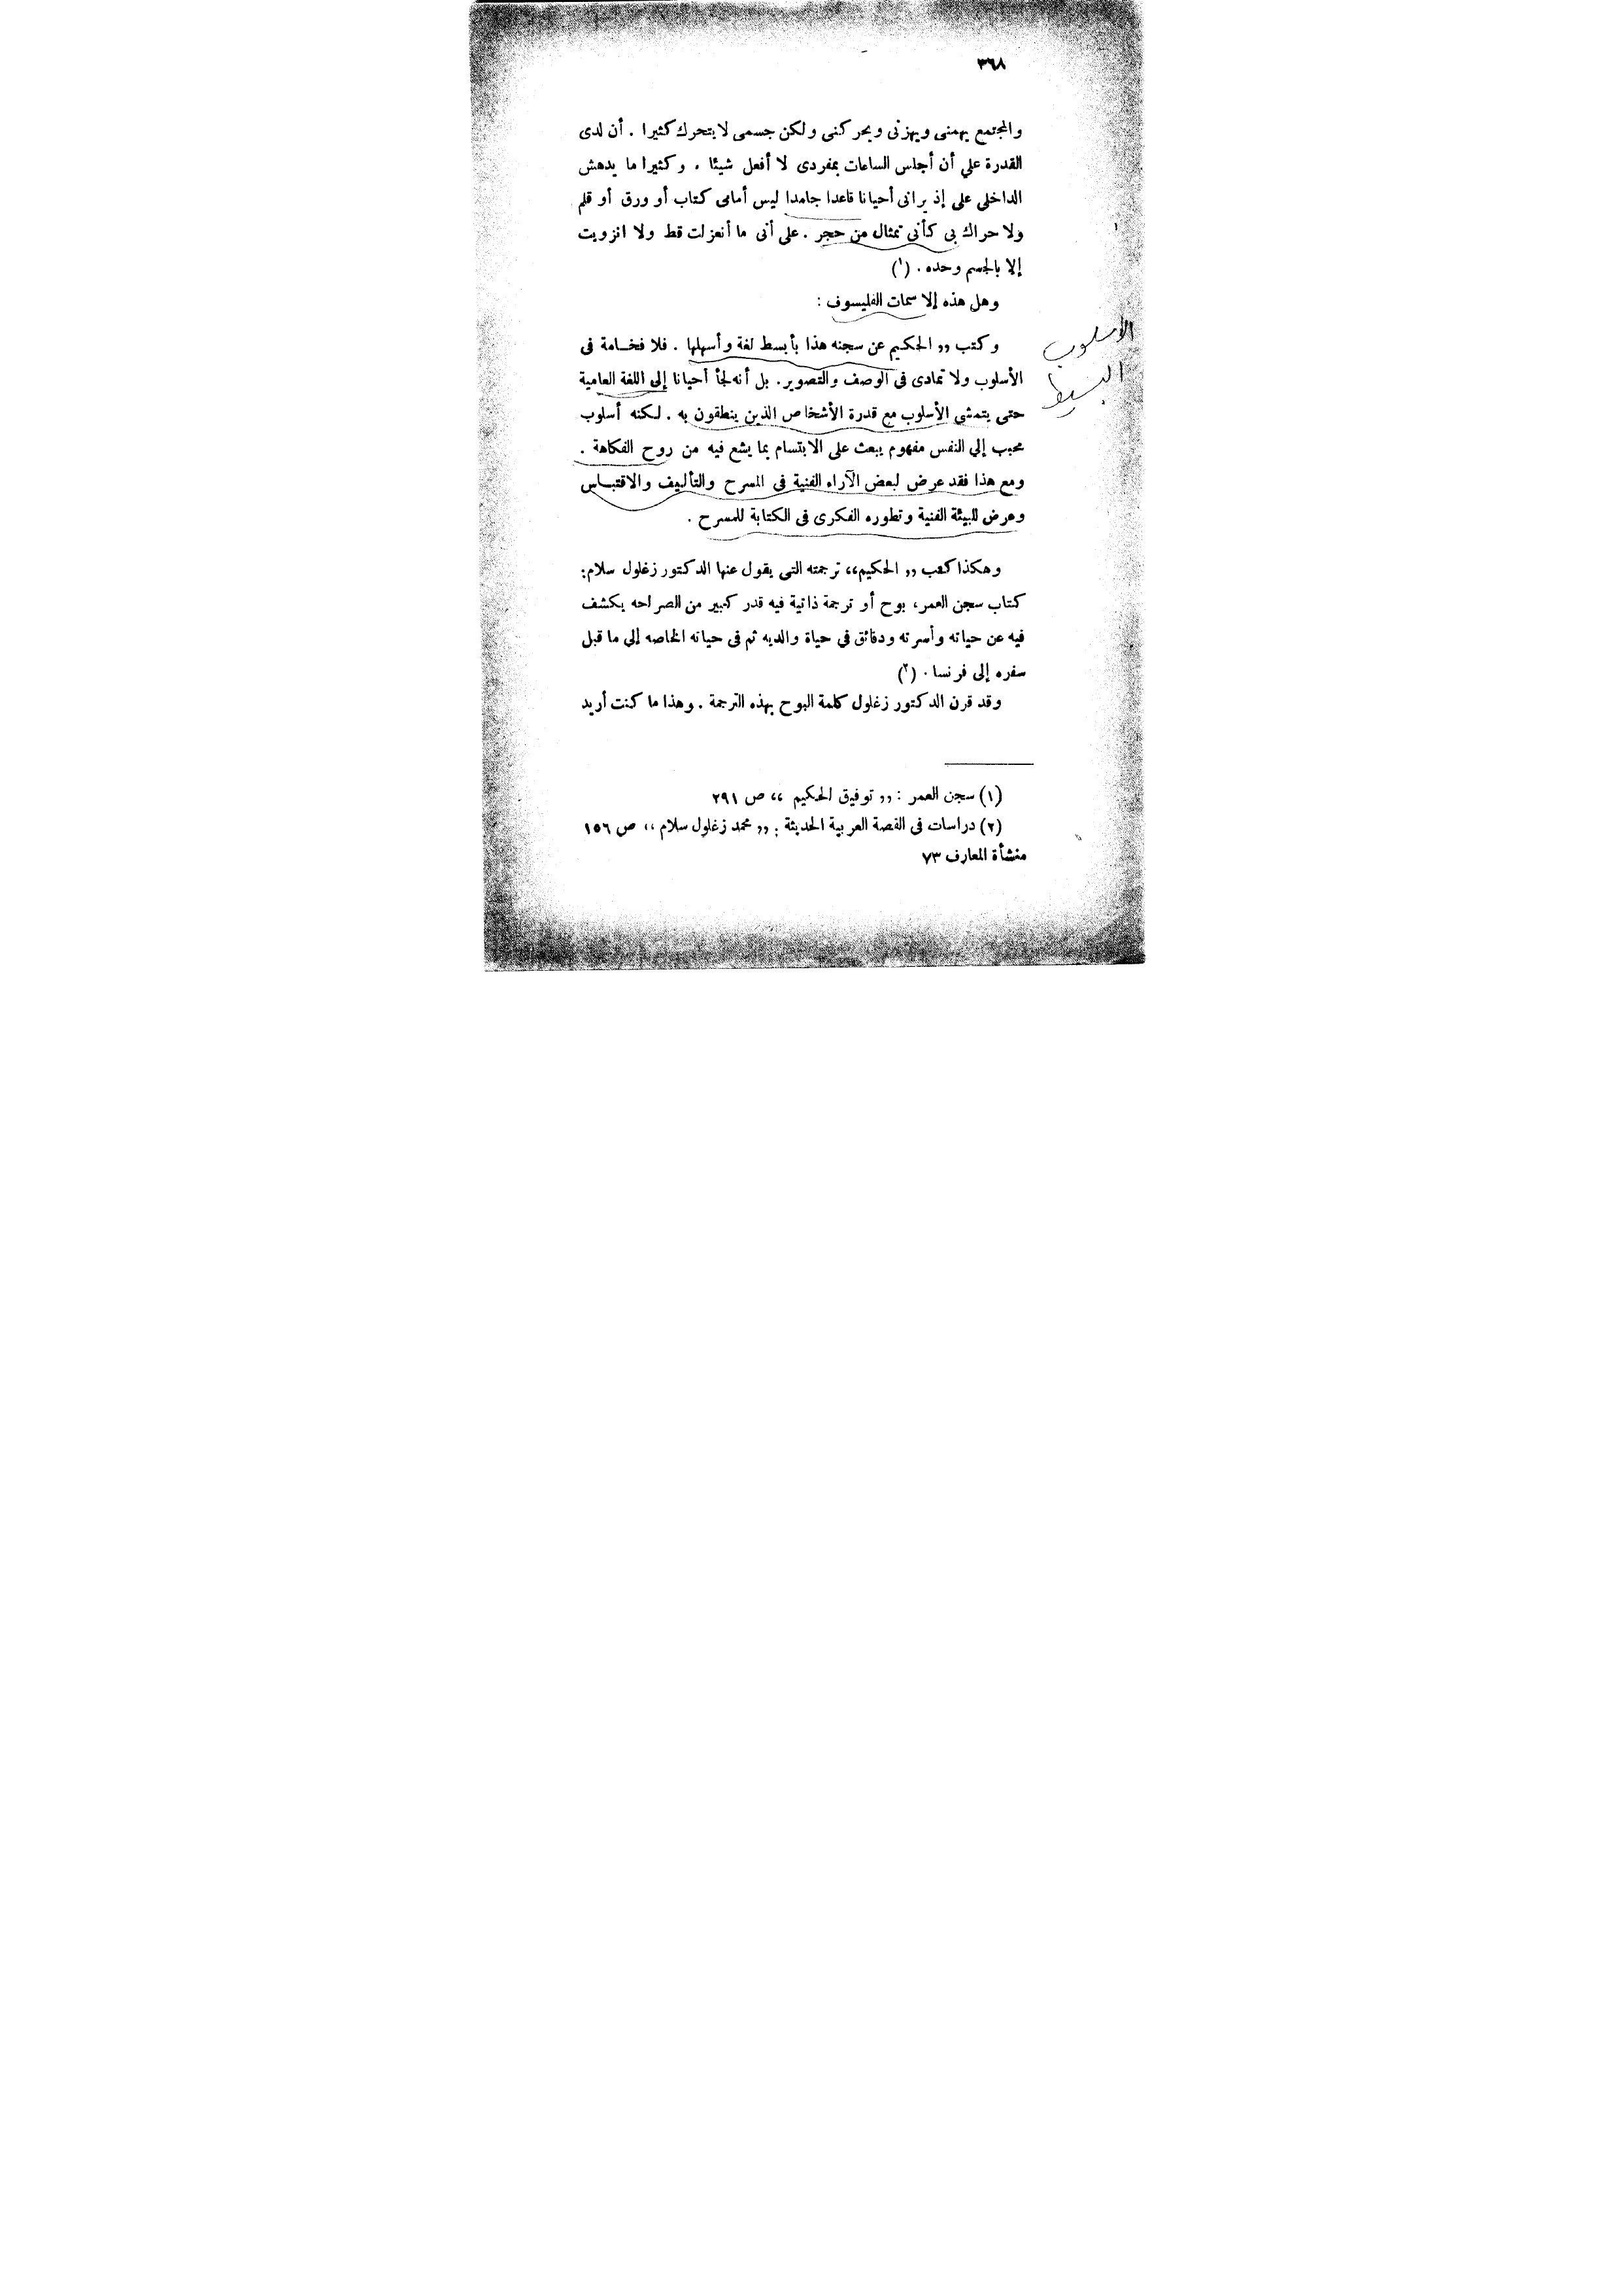 ٣٦٨
والمجتمع يهمنى ويهزنى ويحركنى ولكن جسمى لا يتحرك كثيرا . أن لدى
القدرة على أن أجلس الساعات بمفردى لا أفعل شيئا . وكثيرا ما يدهش
الداخلى على إذ يرانى أحيانا قاعدا جامدا ليس أمامى كتاب أو ورق أو قلم
ولا حراك بى كأنى تمثال من حجر . على أنى ما أنعزلت قط ولا انزويت
إلا بالجسم وحده . (١)
وهل هذه إلا سمات الفليسوف :
وكتب ,, الحكيم عن سجنه هذا بأبسط لغة وأسهلها . فلا فخامة فى
الأسلوب ولا تمادى فى الوصف والتصوير . بل أنه لجأ أحيانا إلى اللغة العامية
حتى يتمشى الأسلوب مع قدرة الأشخاص الذين ينطقون به . لكنه أسلوب
محبب إلى النفس مفهوم يبعث على الابتسام بما يشع فيه من روح الفكاهة .
ومع هذا فقد عرض لبعض الآراء الفنية فى المسرح والتأليف والاقتباس
وعرض للبيئة الفنية وتطوره الفكرى فى الكتابة للمسرح .
الأسلوب
البسيط
وهكذا كتب ,, الحكيم،، ترجمته التى يقول عنها الدكتور زغلول سلام:
كتاب سجن العمر، بوح أو ترجمة ذاتية فيه قدر كبير من الصراحه يكشف
فيه عن حياته وأسرته ودقائق فى حياة والديه ثم فى حياته الخاصه إلى ما قبل
سفره إلى فرنسا . (٢)
وقد قرن الدكتور زغلول كلمة البوح بهذه الترجمة . وهذا ما كنت أريد
(١) سجن العمر : ,, توفيق الحكيم ،، ص ٢٩١
(٢) دراسات فى القصة العربية الحديثة : ,, محمد زغلول سلام ،، ص ١٥٦
منشأة المعارف ٧٣